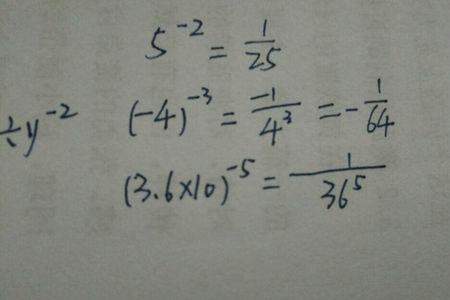 5⁻² = 1/25
÷y⁻² (-4)⁻³ = -1/4³ = -1/64
(3.6×10)⁻⁵ = 1/36⁵